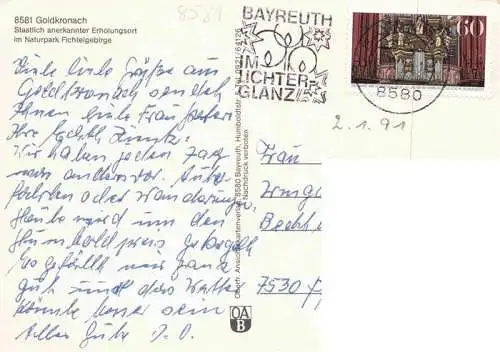 8581 Goldkronach
Staatlich anerkannter Erholungsort
im Naturpark Fichtelgebirge
8581
BAYREUTH
IM
LICHTER-
GLANZ
60
8580
2.1.91
Viele liebe Grüße aus
Goldkronach sendet
Ihnen liebe Frau
Ihre
Wir haben jeden Tag
was anderes vor. Auto-
fahrten oder Wanderung,
Heute wird um den
Humboldpreis gekegelt,
Es gefällt mir ganz
gut und das Wetter
könnte besser sein
Alles Gute
Frau
7530
Oberfr. Ansichtskartenverlag, 8580 Bayreuth, Humboldtstr.
Nachdruck verboten
OA
B